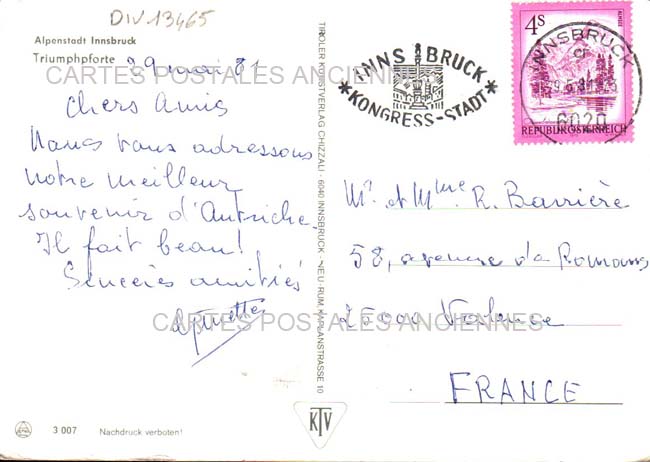 DIV 13465
Alpenstadt Innsbruck
Triumphpforte
29 mai 81
CARTES POSTALES ANCIENNES
Chers Amis
Nous vous adressons
notre meilleur
souvenir d'Autriche,
Il fait beau!
Sincères amitiés
CARTES POSTALES ANCIENNES
3 007 Nachdruck verboten!
TIROLER KUNSTVERLAG CHIZZALI · 6040 INNSBRUCK - NEU-RUM, KAPLANSTRASSE 10
KTV
INNSBRUCK
KONGRESS-STADT
4S
ALMSEE
REPUBLIK ÖSTERREICH
INNSBRUCK
6020
Mr et Mme R. Barrière
58, avenue de Romans
25000 Valence
FRANCE